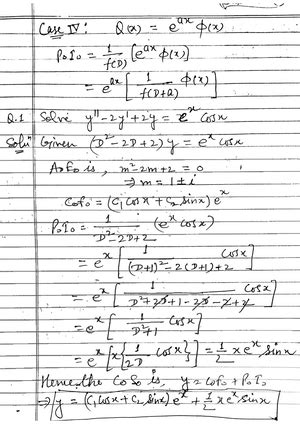 Case IV: Q(x) = e^{ax} φ(x)
P.I. = 1/f(D) [e^{ax} φ(x)]
= e^{ax} [1/f(D+a) φ(x)]
Q.1 Solve y'' - 2y' + 2y = e^x cosx
Solⁿ Given (D² - 2D + 2) y = e^x cosx
A.E. is, m² - 2m + 2 = 0
⇒ m = 1 ± i
C.F. = (C₁ cosx + C₂ sinx) e^x
P.I. = 1/(D² - 2D + 2) (e^x cosx)
= e^x [1/((D+1)² - 2(D+1) + 2) cosx]
= e^x [1/(D² + 2D + 1 - 2D - 2 + 2) cosx]
= e^x [1/(D² + 1) cosx]
= e^x [x {1/2D cosx}] = 1/2 x e^x sinx
Hence, the C.S. is, y = C.F. + P.I.
⇒ y = (C₁ cosx + C₂ sinx) e^x + 1/2 x e^x sinx